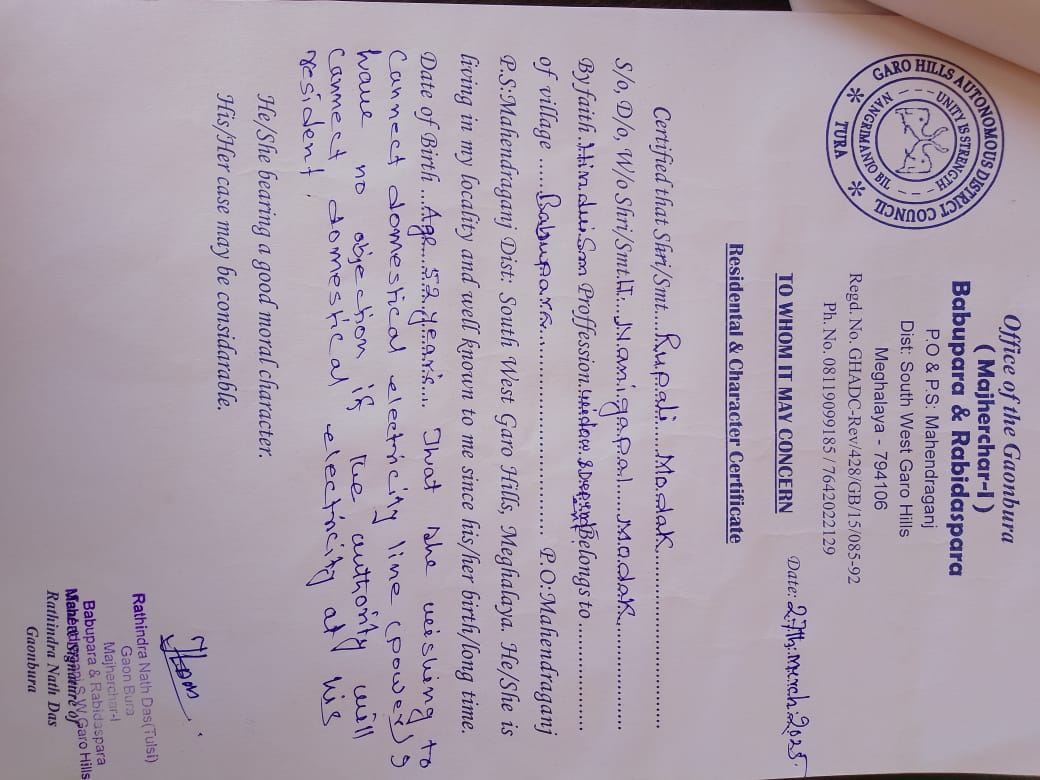 GARO HILLS AUTONOMOUS DISTRICT COUNCIL
UNITY IS STRENGTH
NANGKIMANIO BIL
TURA
Office of the Gaonbura
( Majherchar-I )
Babupara & Rabidaspara
P.O & P.S: Mahendraganj
Dist: South West Garo Hills
Meghalaya - 794106
Regd. No. GHADC-Rev/428/GB/15/085-92
Ph. No. 08119099185 / 7642022129
Date: 27th March 2025
TO WHOM IT MAY CONCERN
Residental & Character Certificate
Certified that Shri/Smt....Rupali.....Modak..........................
S/o, D/o, W/o Shri/Smt.Lt....Nanigopal.....Modak................
By faith.Hinduism Proffession.widow & Belongs to ................
of village ......Babupara.................................. P.O:Mahendraganj
P.S:Mahendraganj Dist: South West Garo Hills, Meghalaya. He/She is
living in my locality and well known to me since his/her birth/long time.
Date of Birth ...Age....52 years.... That she wishing to
connect domestical electricity line (power),
have no objection if the authority will
connect domestical electricity at his
resident.
He/She bearing a good moral character.
His/Her case may be considarable.
Rathindra Nath Das(Tulsi)
Gaon Bura
Majherchar-I
Babupara & Rabidaspara
S.W.Garo Hills
Signature of
Rathindra Nath Das
Gaonbura